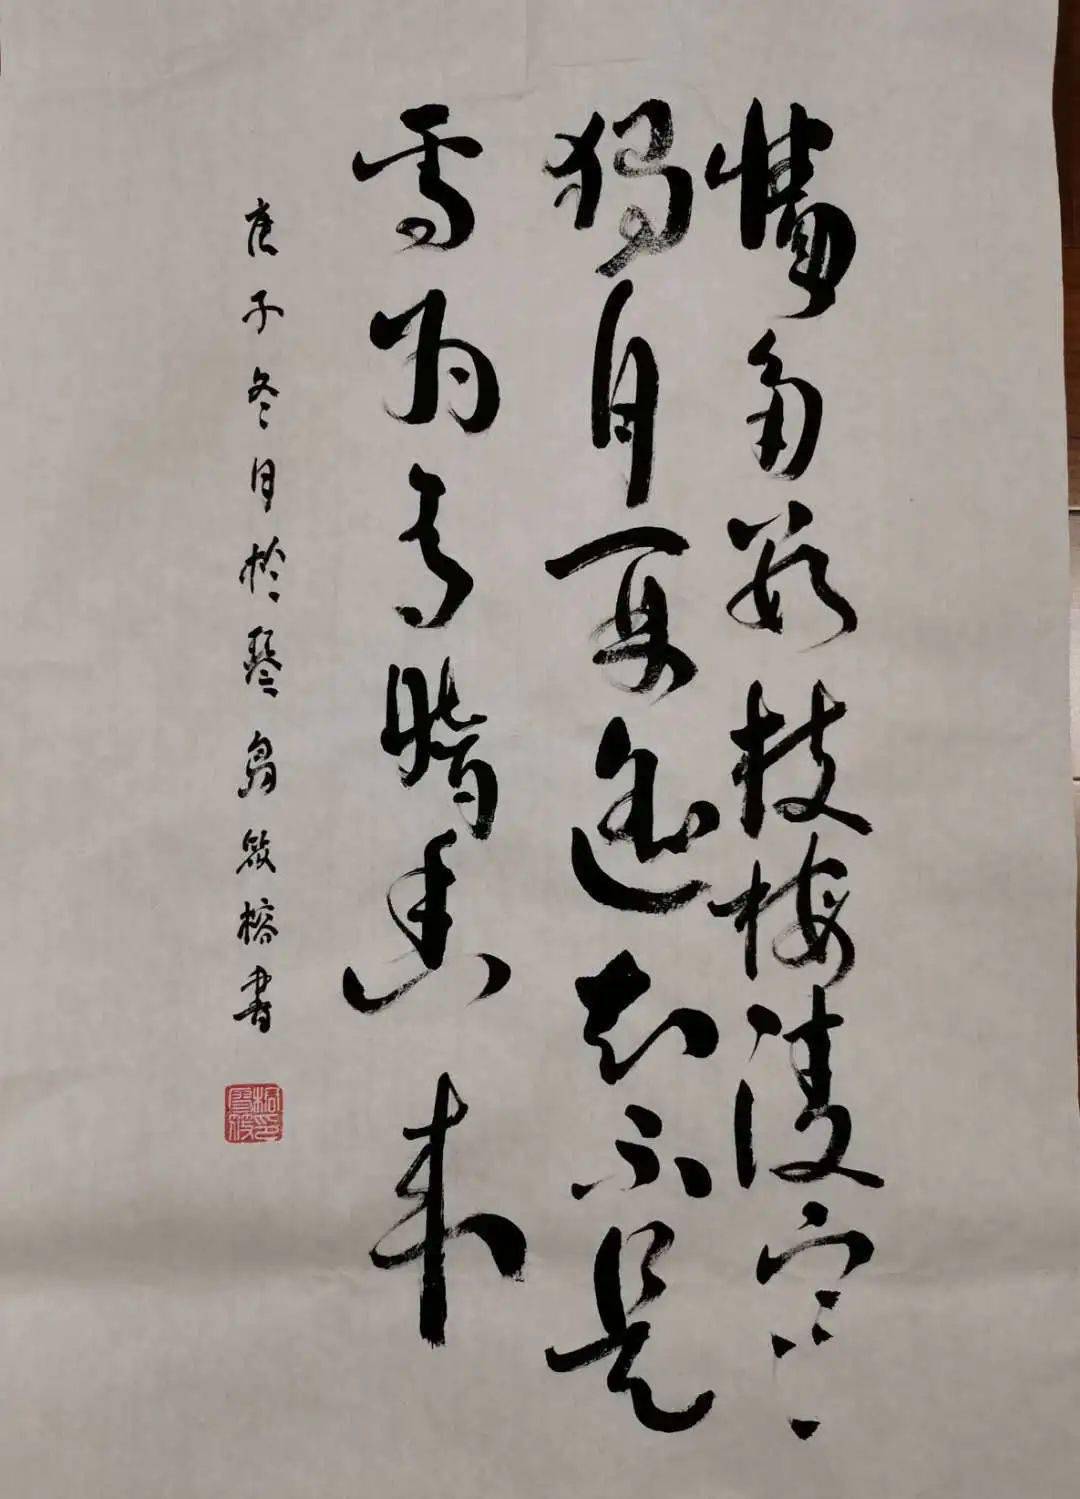 墙角数枝梅凌寒
獨自開遥知不是
雪为有暗香来
庚子冬月於琴島榕書